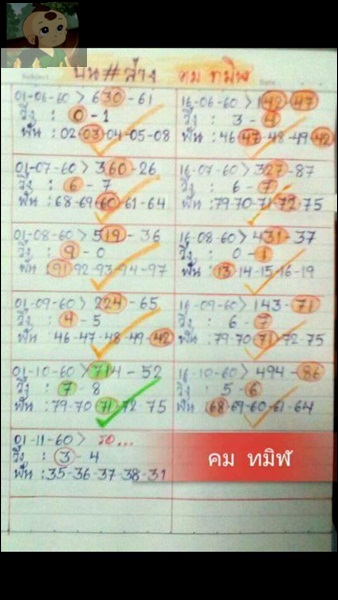 Subject
บน # ล่าง คม ทมิฬ
01-06-60 > 630 - 61
วิ่ง : 0 - 1
ฟัน : 02-03-04-05-08
16-06-60 > 142 - 47
3 - 4
46-47-48-49-42
01-07-60 > 360 - 26
วิ่ง : 6 - 7
ฟัน : 68-69-60-61-64
16-07-60 > 327 - 87
วิ่ง : 6 - 7
ฟัน : 79-70-71-72-75
01-08-60 > 519 - 36
วิ่ง : 9 - 0
ฟัน : 91-92-93-94-97
16-08-60 > 431 - 37
วิ่ง : 0 - 1
ฟัน : 13-14-15-16-19
01-09-60 > 224 - 65
วิ่ง : 4 - 5
46-47-48-49-42
16-09-60 > 143 - 71
วิ่ง : 6 - 7
ฟัน : 79-70-71-72-75
01-10-60 > 714 - 52
วิ่ง : 7 - 8
ฟัน : 79-70-71-72-75
16-10-60 > 494 - 86
วิ่ง : 5 - 6
ฟัน : 68-69-60-61-64
01-11-60 > รอ...
วิ่ง : 3 - 4
ฟัน : 35-36-37-38-31
คม ทมิฬ